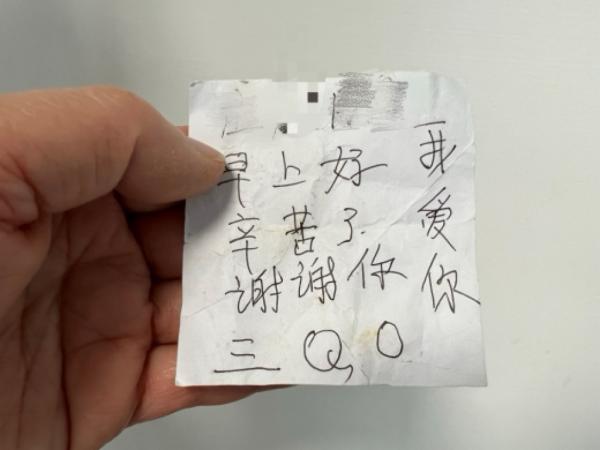 早上好
辛苦了
谢谢你
三Q O
我爱你